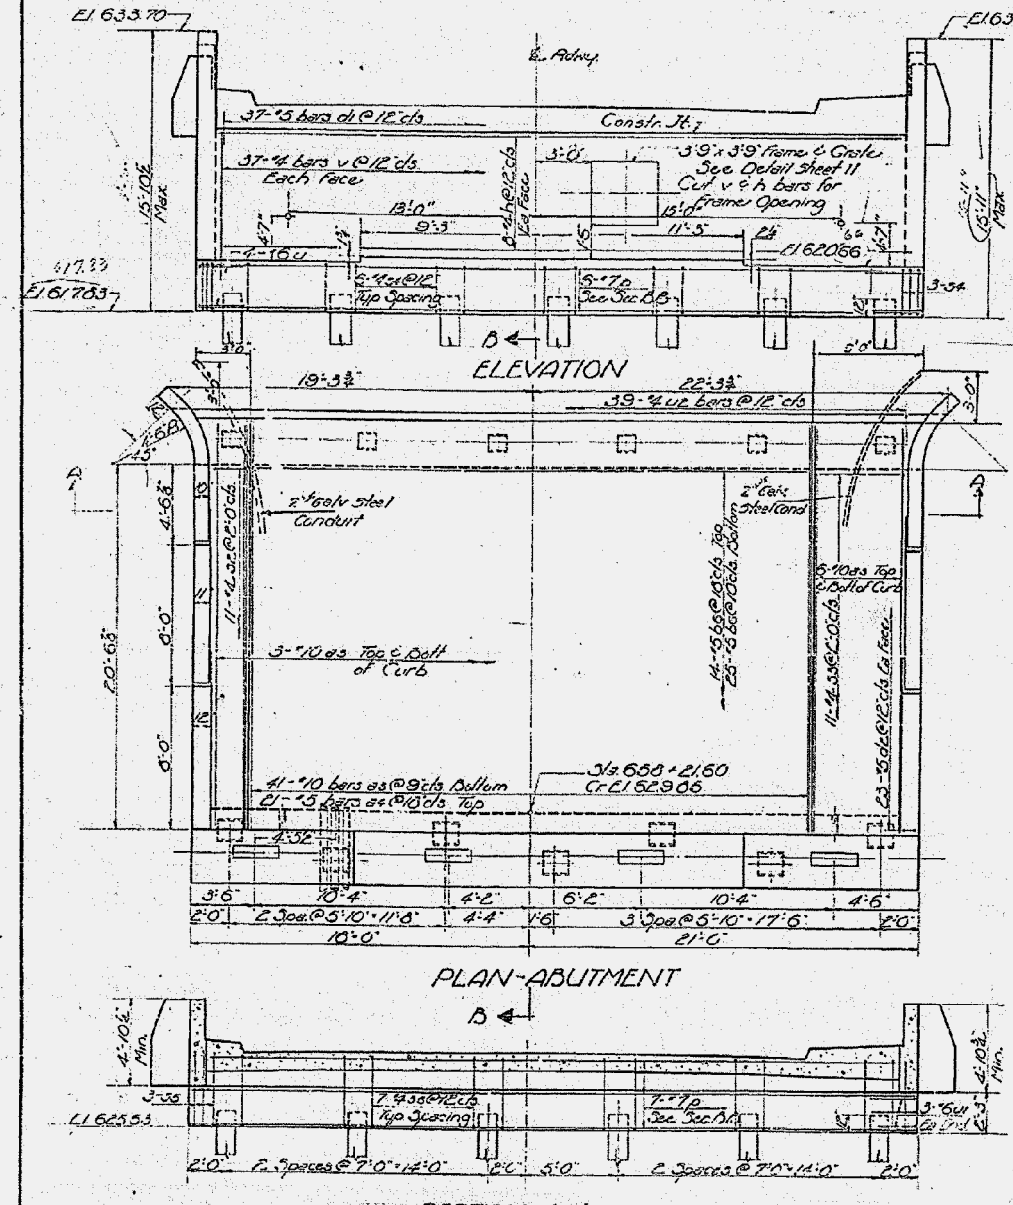 El. 633.70
El. 63
℄ Rdwy.
37-#5 bars d1 @ 12" cts
Constr. Jt.
37-#4 bars v @ 12" cts
Each Face
8-#4 h @ 12" cts
Ea Face
3'-0"
3'9 x 3'9 Frame & Grate
See Detail Sheet 11
Cut v & h bars for
Frame Opening
15'-10½"
Max.
15'-11"
Max.
13'-0"
15'-0"
9'-3"
11'-5"
4'-7"
4'-7"
1'-6"
El. 620.66
617.33
El. 617.83
Typ Spacing
6-#7p
See Sec B-B
3-s4
B
ELEVATION
3'-0"
5'-0"
19'-3¾"
22'-3¾"
39-#4 u2 bars @ 12" cts
3'-0"
A
A
2"⌀ Galv Steel
Conduit
2"⌀ Galv.
Steel Cond
4'-6⅜"
8'-0"
8'-0"
20'-6⅜"
10
11
12
11-#4 s2 @ 2'-0" cts
5-#10 a3 Top & Bott
of Curb
6-#10 a3 Top
& Bott of Curb
14-#5 b6 @ 18" cts Top
25-#5 b6 @ 10" cts Bottom
11-#4 s3 @ 2'-0" cts
23-#5 d2 @ 12" cts Ea Face
41-#10 bars a5 @ 9" cts Bottom
21-#5 bars a4 @ 18" cts Top
Sta. 658+21.60
Cr El 629.06
4-s2
3'-6" 10'-4" 4'-2" 6'-2" 10'-4" 4'-6"
2'-0" 2 Spa. @ 5'-10" = 11'-8" 4'-4" 1'-6" 3 Spa @ 5'-10" = 17'-6" 2'-0"
18'-0" 21'-0"
PLAN-ABUTMENT
B
4'-10½"
Min.
4'-10¾"
Min.
3-s5
Typ Spacing
7-#7p
See Sec B-B
3-#6u1
Ea End
2'-3"
El 625.53
2'-0" 2 Spaces @ 7'-0" = 14'-0" 2'-0" 5'-0" 2 Spaces @ 7'-0" = 14'-0" 2'-0"